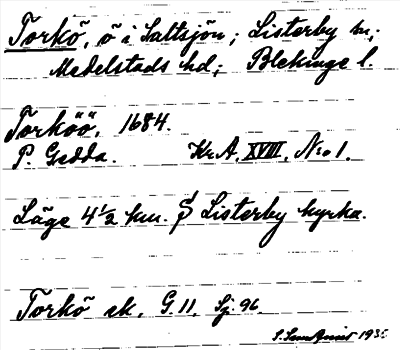 Torkö, ö i Saltsjön; Listerby sn;
Medelstads hd; Blekinge l.
Torköö, 1684.
P. Gedda. Kr.A. XVIII, No 1.
Läge 4½ km. S Listerby kyrka.
Torkö ek. G. 11, Sj. 96.
1935